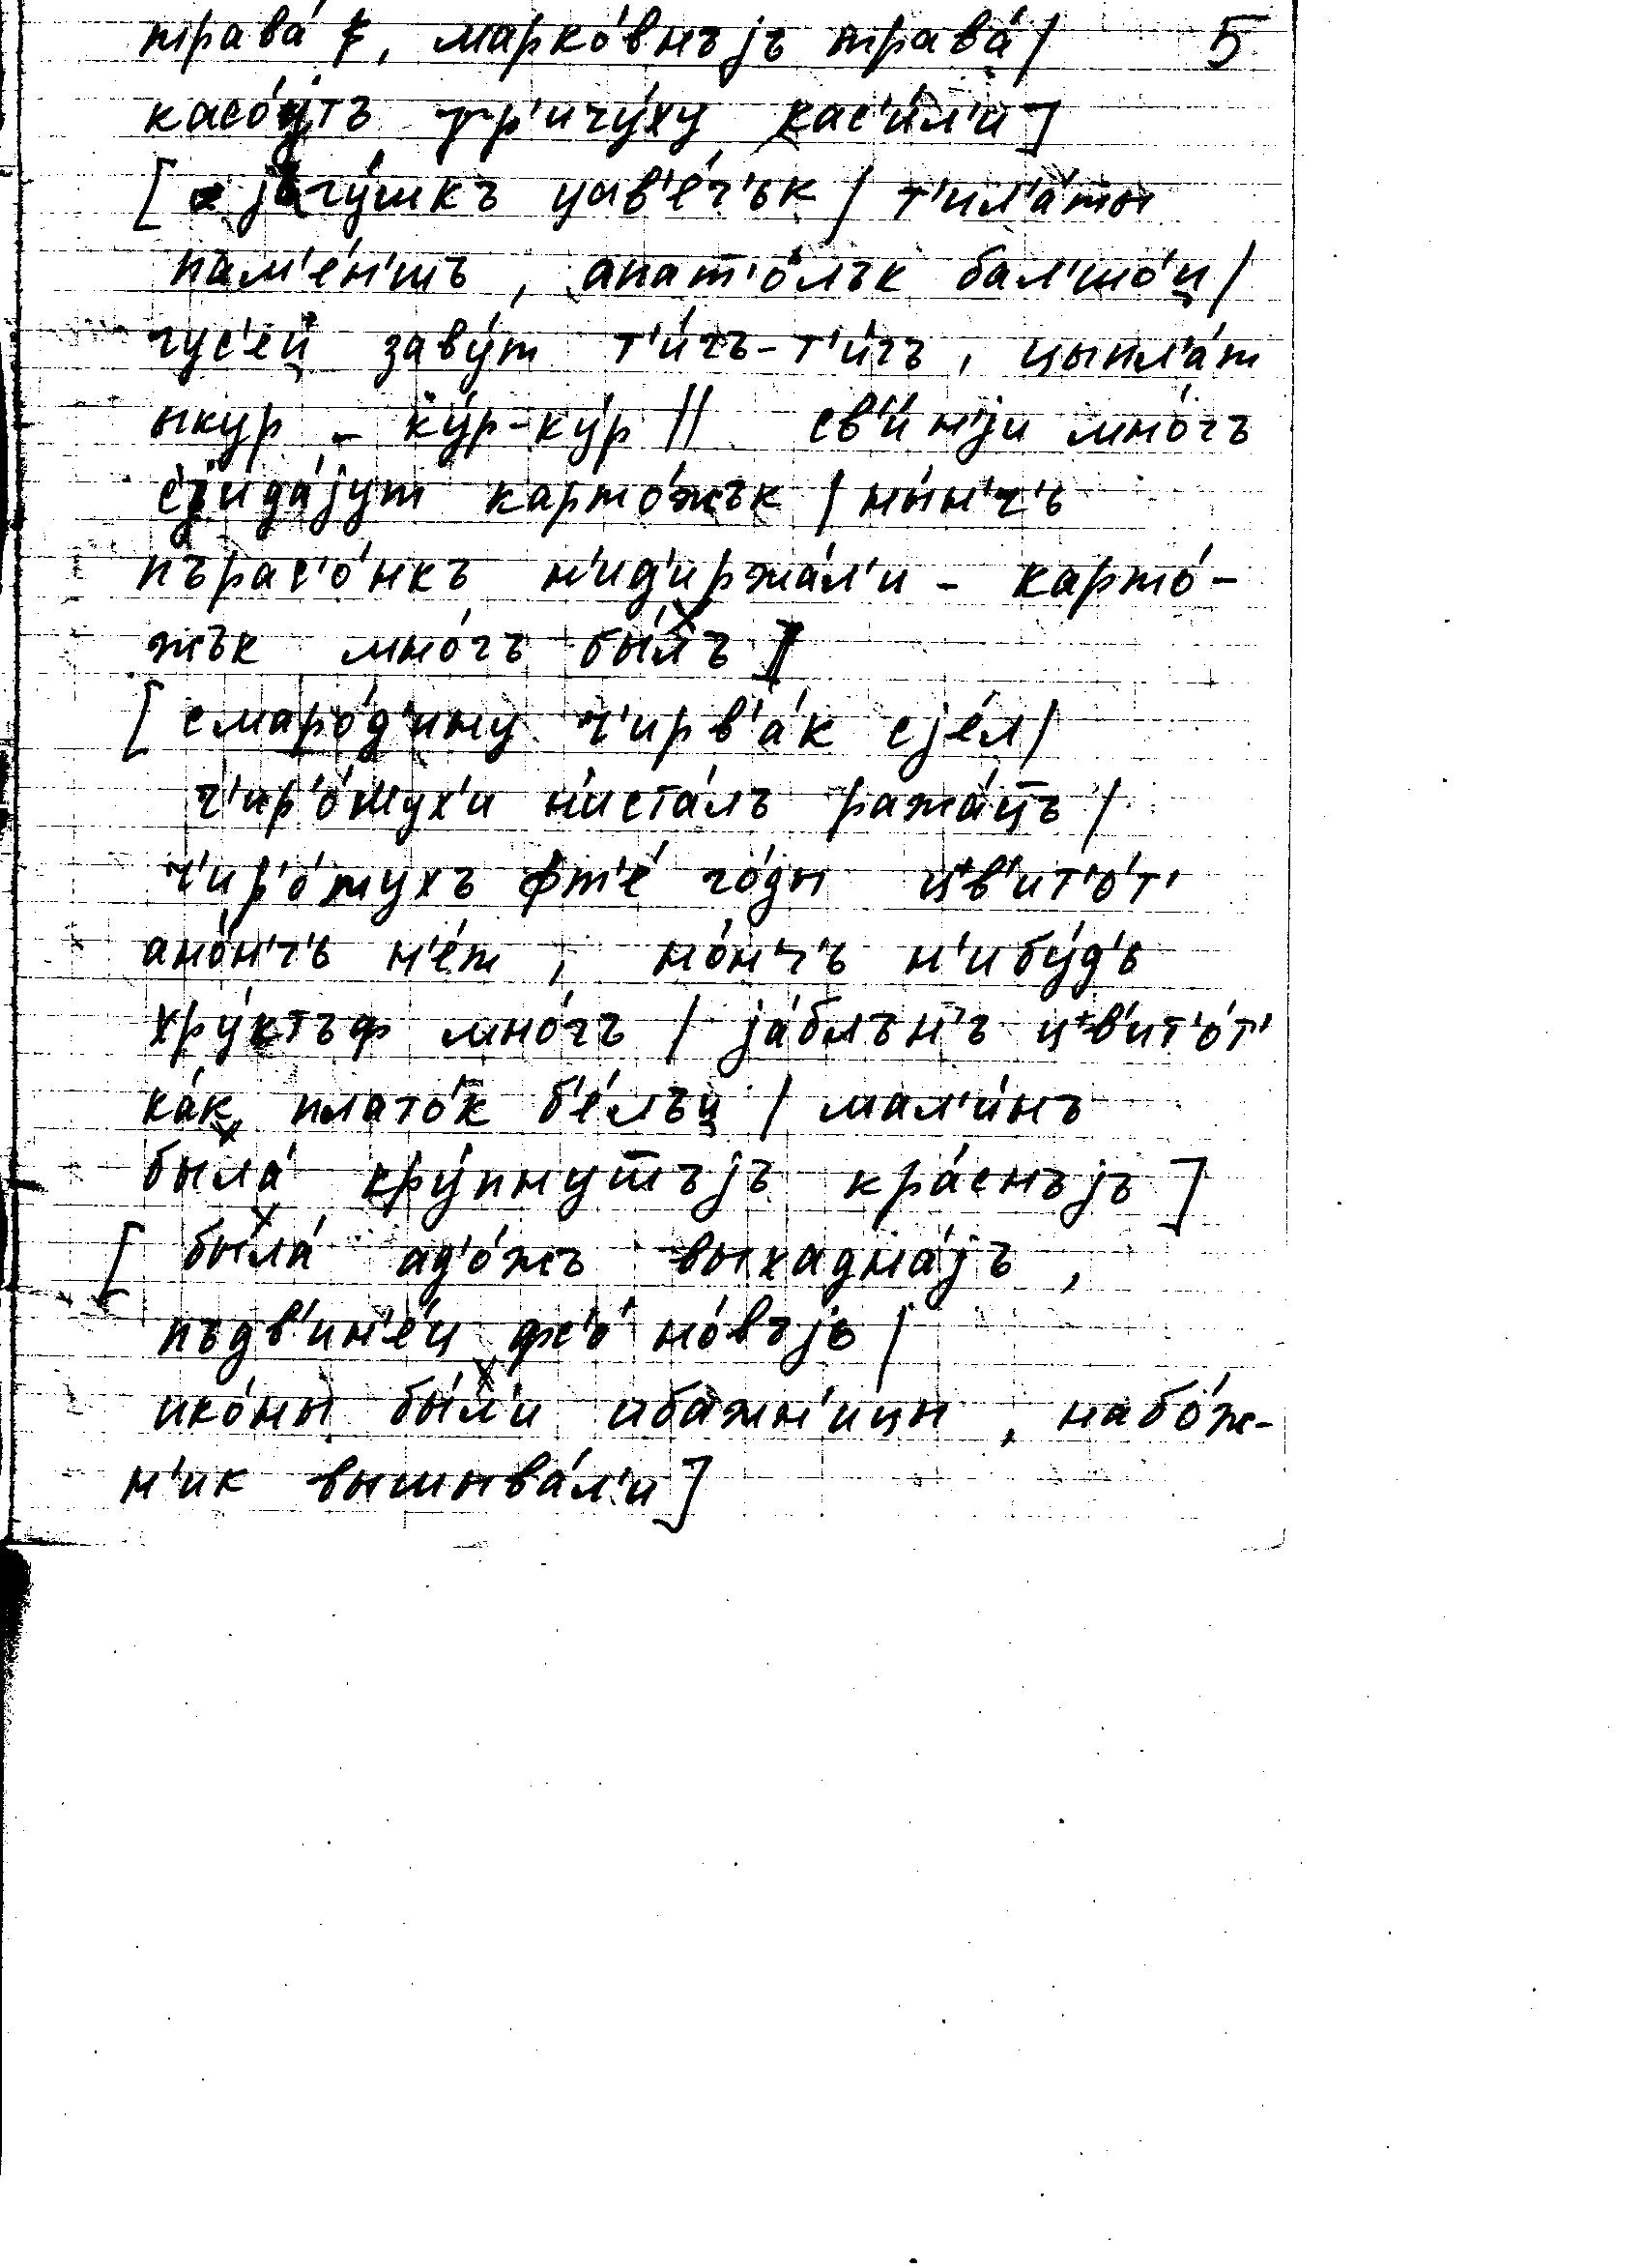 трава́, марко́внъjъ трава́/ 5
касо́jтъ гр'ичу́ху кас'и́л'и]
[jагу́шкъ ув'е́ч'ьк / т'ил'а́ты
пам'е́н'шъ, апат'о́лък бал'шо́и̯/
гус'еи̯ заву́т т'и́гъ-т'и́гъ, цыпл'а́т
ыкур - ку́р-ку́р // св'и́н'jи мно́гъ
сjида́jут карто́жък / ны́н'ч'ь
пърас'о́нкъ н'ид'иржа́л'и - карто́-
жък мно́гъ бы́лъ]
[смаро́д'ину ч'ирв'а́к сjе́л/
ч'ир'о́мух'и н'иста́лъ ража́ц̅ъ /
ч'ир'о́мухъ фт'е́ го́ды ц'в'ит'о́т'
ано́н'ч'ь н'е́т, но́н'ч'ь н'ибу́д'ь
хру́ктъф мно́гъ / jа́блън'ь ц'в'ит'о́т'
ка́к плато́к б'е́лъи̯ / мал'и́нъ
была́ кру́пнут̅ъjъ кра́снъjъ]
[была́ ад'о́жъ выхадна́jъ,
пъдв'ин'е́и̯ фс'о́ но́въjь /
ико́ны бы́л'и ибажн'ицы, набо́ж-
н'ик вышыва́л'и]